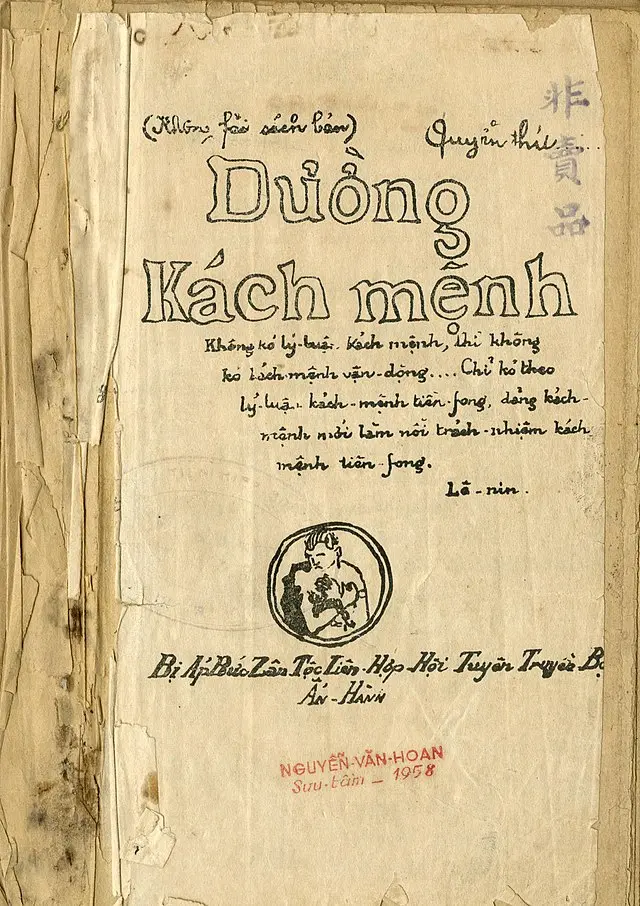 (Không fải sách bán)
Quyển thứ.....
非賣品
Đường
Kách mệnh
Không kó lý-luận kách mệnh, thì không
kó kách mệnh vận-động.... Chỉ kó theo
lý-luận kách-mệnh tiền-fong, đảng kách-
mệnh mới làm nổi trách-nhiệm kách
mệnh tiền-fong.
Lê-nin.
Bị Áp Bức Zân Tộc Liên-Hợp Hội Tuyên Truyền Bộ
Ấn-Hành
NGUYỄN-VĂN-HOAN
Sưu-tầm _ 1958